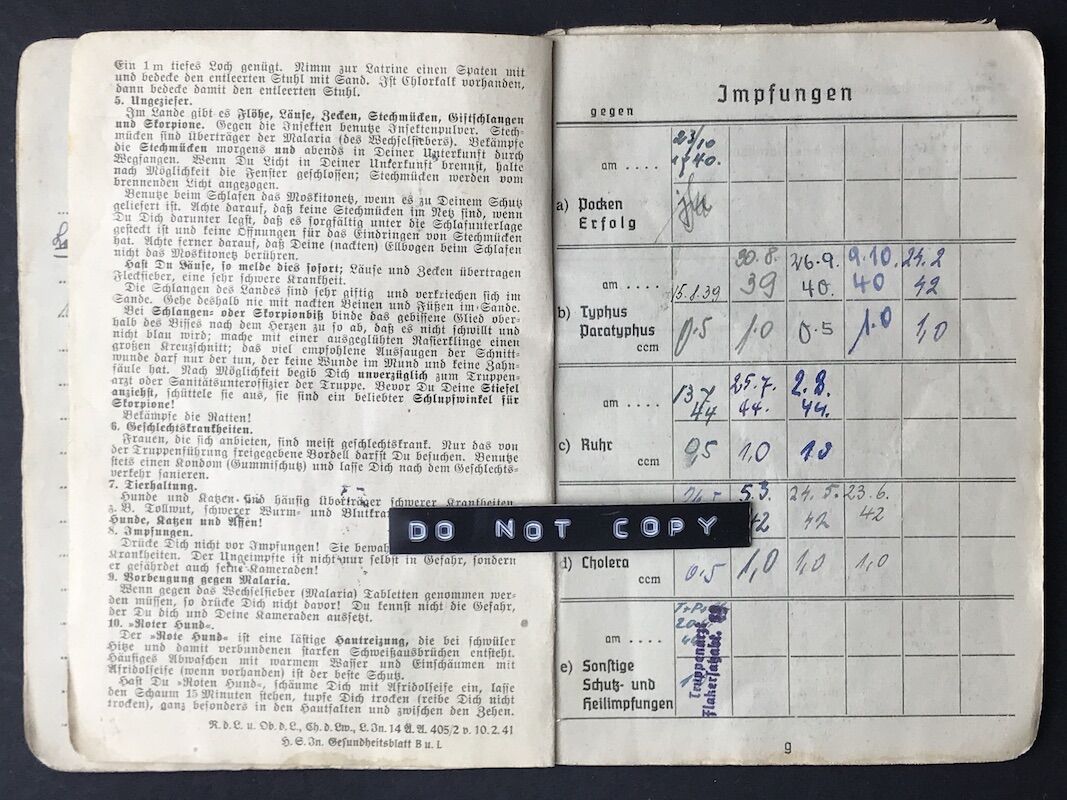 Ein 1 m tiefes Loch genügt. Nimm zur Latrine einen Spaten mit
und bedecke den entleerten Stuhl mit Sand. Ist Chlorkalk vorhanden,
dann bedecke damit den entleerten Stuhl.
5. Ungeziefer.
Im Lande gibt es Flöhe, Läuse, Zecken, Stechmücken, Giftschlangen
und Skorpione. Gegen die Insekten benutze Insektenpulver. Stech-
mücken sind Überträger der Malaria (des Wechselfiebers). Bekämpfe
die Stechmücken morgens und abends in Deiner Unterkunft durch
Wegfangen. Wenn Du Licht in Deiner Unterkunft brennst, halte
nach Möglichkeit die Fenster geschlossen; Stechmücken werden vom
brennenden Licht angezogen.
Benutze beim Schlafen das Moskitonetz, wenn es zu Deinem Schutz
geliefert ist. Achte darauf, daß keine Stechmücken im Netz sind, wenn
Du Dich darunter legst, daß es sorgfältig unter die Schlafunterlage
gesteckt ist und keine Öffnungen für das Eindringen von Stechmücken
hat. Achte ferner darauf, daß Deine (nackten) Ellbogen beim Schlafen
nicht das Moskitonetz berühren.
Hast Du Läuse, so melde dies sofort; Läuse und Zecken übertragen
Fleckfieber, eine sehr schwere Krankheit.
Die Schlangen des Landes sind sehr giftig und verkriechen sich im
Sande. Gehe deshalb nie mit nackten Beinen und Füßen im Sande.
Bei Schlangen- oder Skorpionbiß binde das gebissene Glied ober-
halb des Bisses nach dem Herzen zu so ab, daß es nicht schwillt und
nicht blau wird; mache mit einer ausgeglühten Rasierklinge einen
großen Kreuzschnitt; das viel empfohlene Aussaugen der Schnitt-
wunde darf nur der tun, der keine Wunde im Mund und keine Zahn-
fäule hat. Nach Möglichkeit begib Dich unverzüglich zum Truppen-
arzt oder Sanitätsunteroffizier der Truppe. Bevor Du Deine Stiefel
anziehst, schüttele sie aus, sie sind ein beliebter Schlupfwinkel für
Skorpione!
Bekämpfe die Ratten!
6. Geschlechtskrankheiten.
Frauen, die sich anbieten, sind meist geschlechtskrank. Nur das von
der Truppenführung freigegebene Bordell darfst Du besuchen. Benutze
stets einen Kondom (Gummischutz) und lasse Dich nach dem Geschlechts-
verkehr sanieren.
7. Tierhaltung.
Hunde und Katzen sind häufig Überträger schwerer Krankheiten
z. B. Tollwut, schwerer Wurm- und
Hunde, Katzen und Affen!
8. Impfungen.
Drücke Dich nicht vor Impfungen! Sie
Krankheiten. Der Ungeimpfte ist nicht nur selbst in Gefahr, sondern
er gefährdet auch seine Kameraden!
9. Vorbeugung gegen Malaria.
Wenn gegen das Wechselfieber (Malaria) Tabletten genommen wer-
den müssen, so drücke Dich nicht davor! Du kennst nicht die Gefahr,
der Du dich und Deine Kameraden aussetzt.
10. »Roter Hund«.
Der »Rote Hund« ist eine lästige Hautreizung, die bei schwüler
Hitze und damit verbundenen starken Schweißausbrüchen entsteht.
Häufiges Abwaschen mit warmem Wasser und Einschäumen mit
Afridolseife (wenn vorhanden) ist der beste Schutz.
Hast Du »Roten Hund«, schäume Dich mit Afridolseife ein, lasse
den Schaum 15 Minuten stehen, tupfe Dich trocken (reibe Dich nicht
trocken), ganz besonders in den Hautfalten und zwischen den Zehen.
R. d. L. u. Ob. d. L., Ch. d. Lw., L. In. 14 A. A. 405/2 v. 10. 2. 41
H. S. In. Gesundheitsblatt B u. L
DO NOT COPY
Impfungen
gegen
23/10
am .... 1940.
a) Pocken
Erfolg
30.8. 26.9. 9.10. 24.2
am .... 15.8.39 39 40. 40 42
b) Typhus
Paratyphus
ccm 0.5 1.0 0.5 1.0 1,0
13.7 25.7. 2.8.
am .... 44 44. 44.
c) Ruhr 0,5 1,0 1,0
ccm
5.3. 24.5. 23.6.
42 42 42
d) Cholera
ccm 0.5 1,0 1,0 1,0
am ....
e) Sonstige
Schutz- und
Heilimpfungen
Truppenarzt
Flakersatzabt.
9